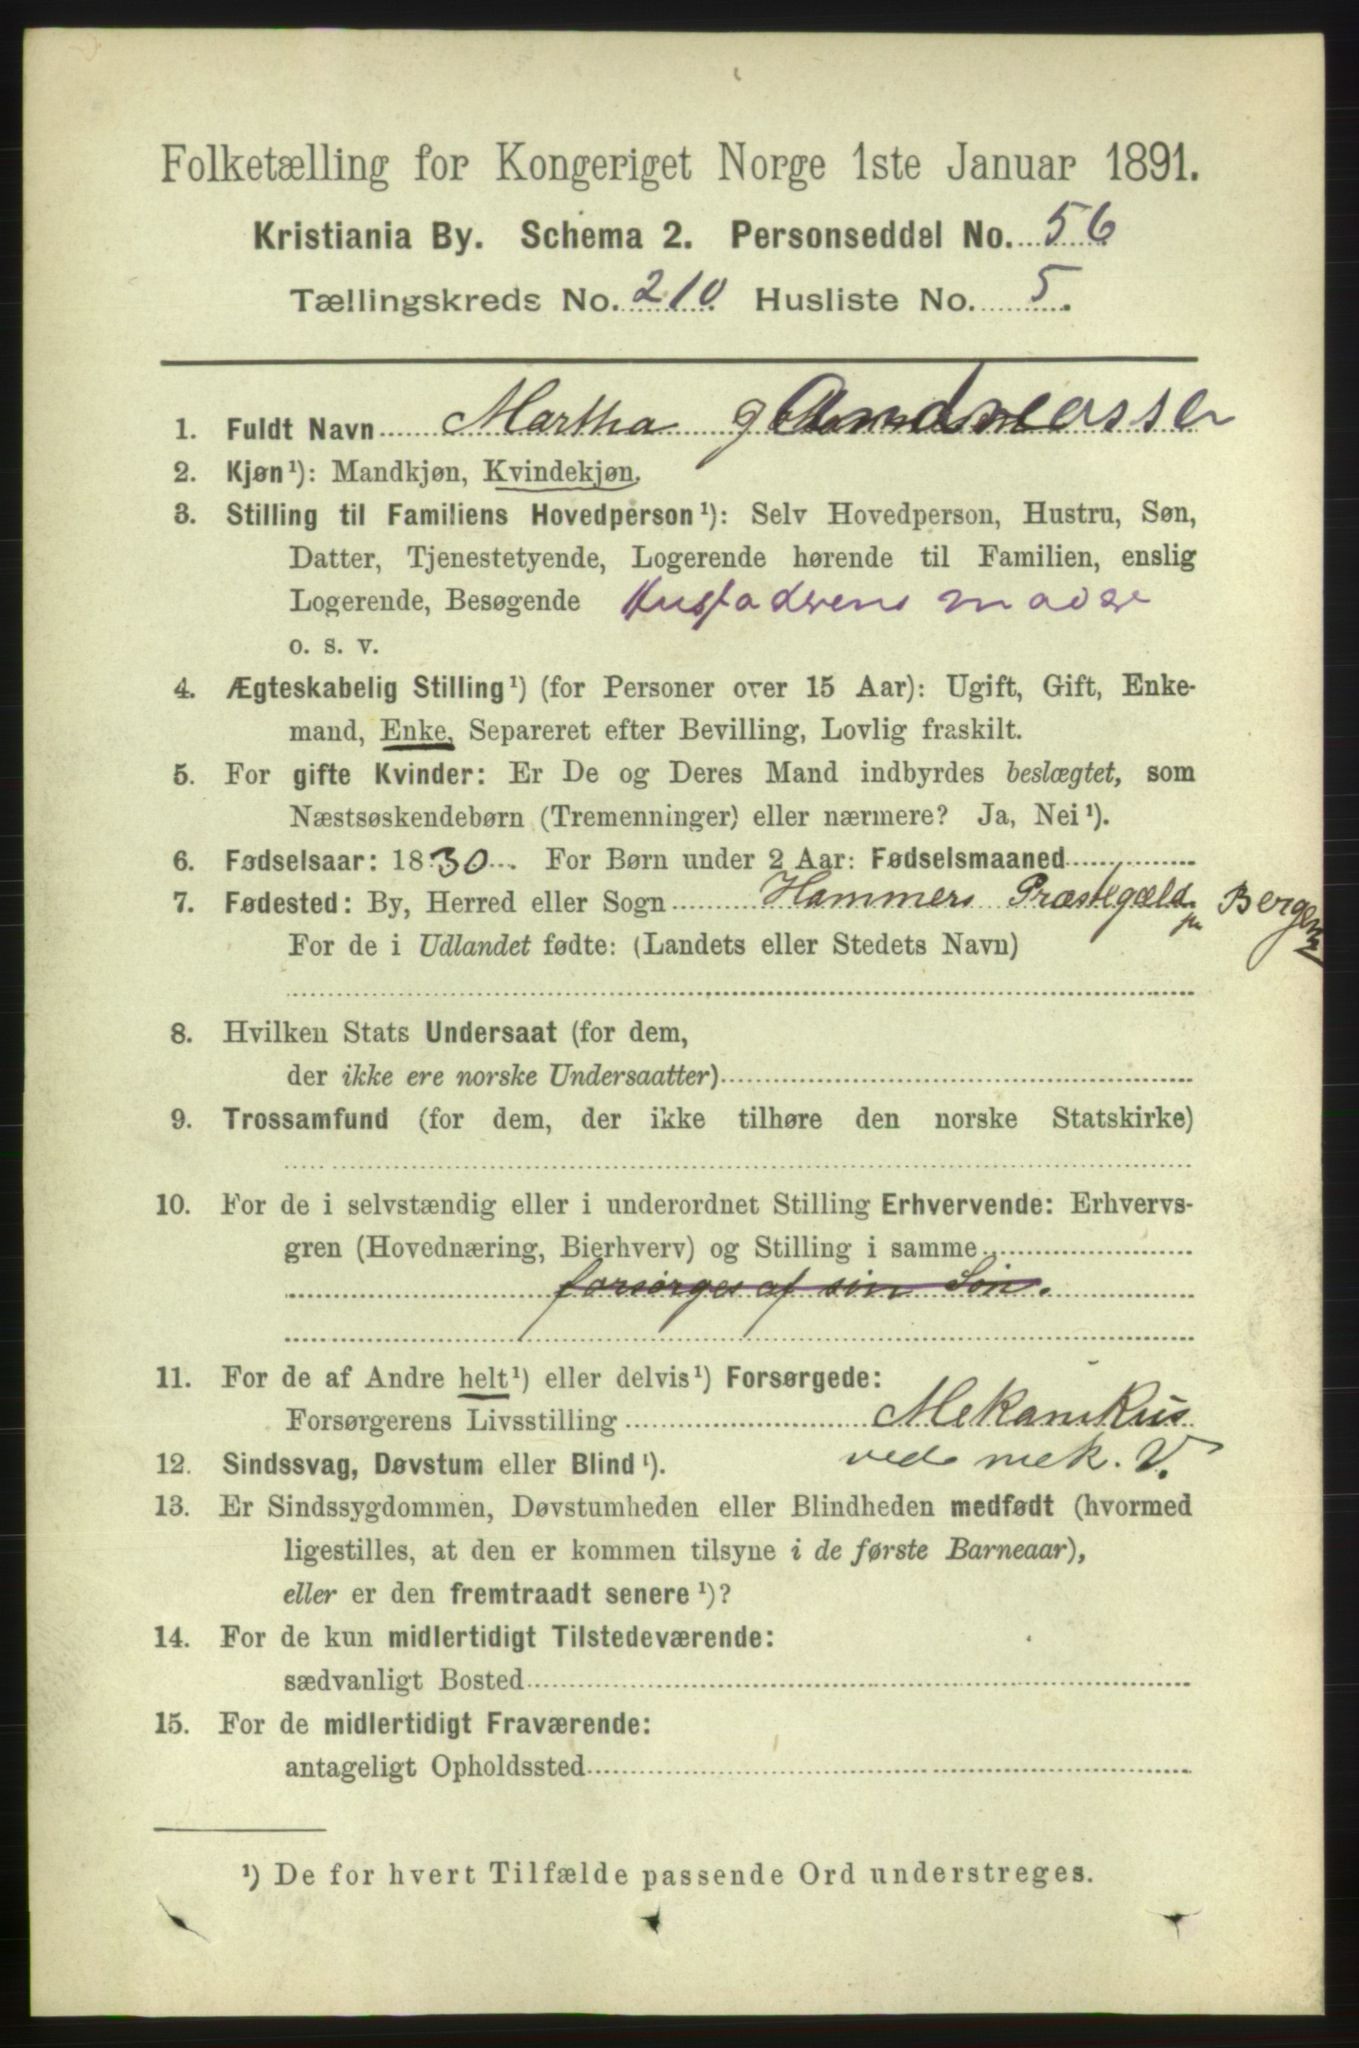 Folketælling for Kongeriget Norge 1ste Januar 1891.
Kristiania By. Schema 2. Personseddel No. 56
Tællingskreds No. 210 Husliste No. 5.
1. Fuldt Navn Martha Andreassen
2. Kjøn¹): Mandkjøn, Kvindekjøn.
3. Stilling til Familiens Hovedperson¹): Selv Hovedperson, Hustru, Søn,
Datter, Tjenestetyende, Logerende hørende til Familien, enslig
Logerende, Besøgende Husfaderens moder
o. s. v.
4. Ægteskabelig Stilling¹) (for Personer over 15 Aar): Ugift, Gift, Enke-
mand, Enke, Separeret efter Bevilling, Lovlig fraskilt.
5. For gifte Kvinder: Er De og Deres Mand indbyrdes beslægtet, som
Næstsøskendebørn (Tremenninger) eller nærmere? Ja, Nei¹).
6. Fødselsaar: 1830 For Børn under 2 Aar: Fødselsmaaned
7. Fødested: By, Herred eller Sogn Hammers Præstegæld pr Bergen
For de i Udlandet fødte: (Landets eller Stedets Navn)
8. Hvilken Stats Undersaat (for dem,
der ikke ere norske Undersaatter)
9. Trossamfund (for dem, der ikke tilhøre den norske Statskirke)
10. For de i selvstændig eller i underordnet Stilling Erhvervende: Erhvervs-
gren (Hovednæring, Bierhverv) og Stilling i samme
forsørges af sin Søn.
11. For de af Andre helt¹) eller delvis¹) Forsørgede:
Forsørgerens Livsstilling Mekanikus
ved mek. V.
12. Sindssvag, Døvstum eller Blind¹).
13. Er Sindssygdommen, Døvstumheden eller Blindheden medfødt (hvormed
ligestilles, at den er kommen tilsyne i de første Barneaar),
eller er den fremtraadt senere¹)?
14. For de kun midlertidigt Tilstedeværende:
sædvanligt Bosted
15. For de midlertidigt Fraværende:
antageligt Opholdssted
¹) De for hvert Tilfælde passende Ord understreges.